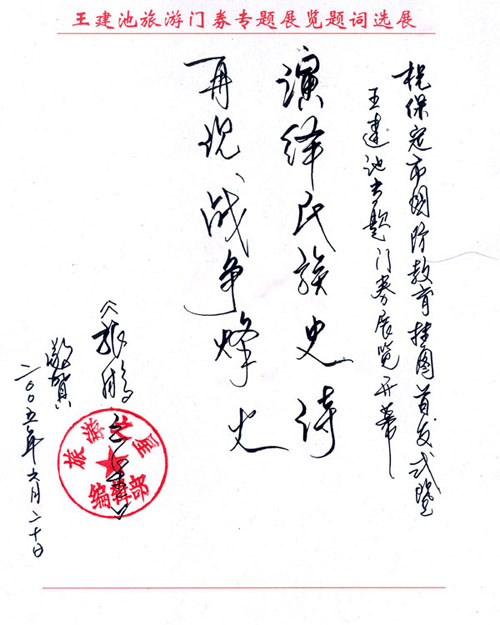 王建池旅游门券专题展览题词选展
祝保定市国防教育挂图首发式暨
王建池专题门券展览开幕
演绎民族史诗
再现战争烽火
敬贺
二00五年六月二十日
旅游之星
编辑部